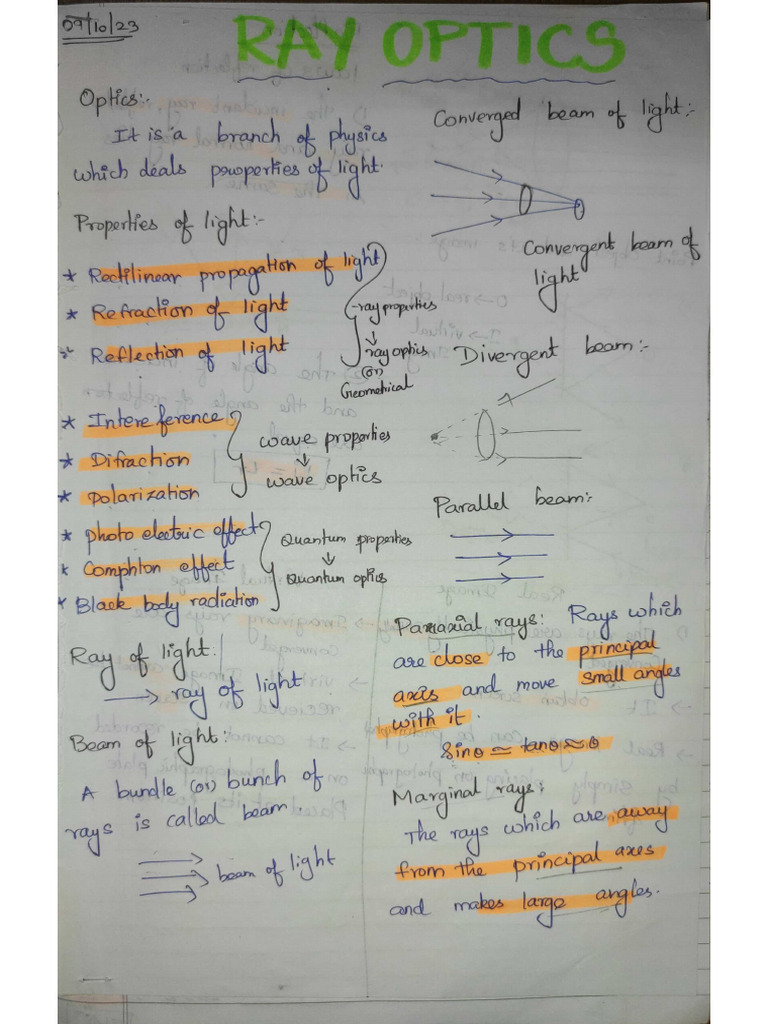 09/10/23
RAY OPTICS
Optics:-
It is a branch of physics
which deals peoperties of light.
Properties of light:-
* Rectilinear propagation of light
* Refraction of light
* Reflection of light
ray properties
ray optics
(or)
Geometrical
* Intereference
* Difraction
* polarization
wave properties
wave optics
* photo electric effect
* Comphton effect
* Black body radiation
Quantum properties
Quantum optics
Ray of light:
ray of light
Beam of light:
A bundle (or) bunch of
rays is called beam
beam of light
Converged beam of light:-
Convergent beam of
light
Divergent beam:-
Parallel beam:-
Paraxial rays: Rays which
are close to the principal
axis and move small angles
with it.
Sinθ ≃ tanθ ≈ θ
Marginal rays:
The rays which are away
from the principal axes
and makes large angles.